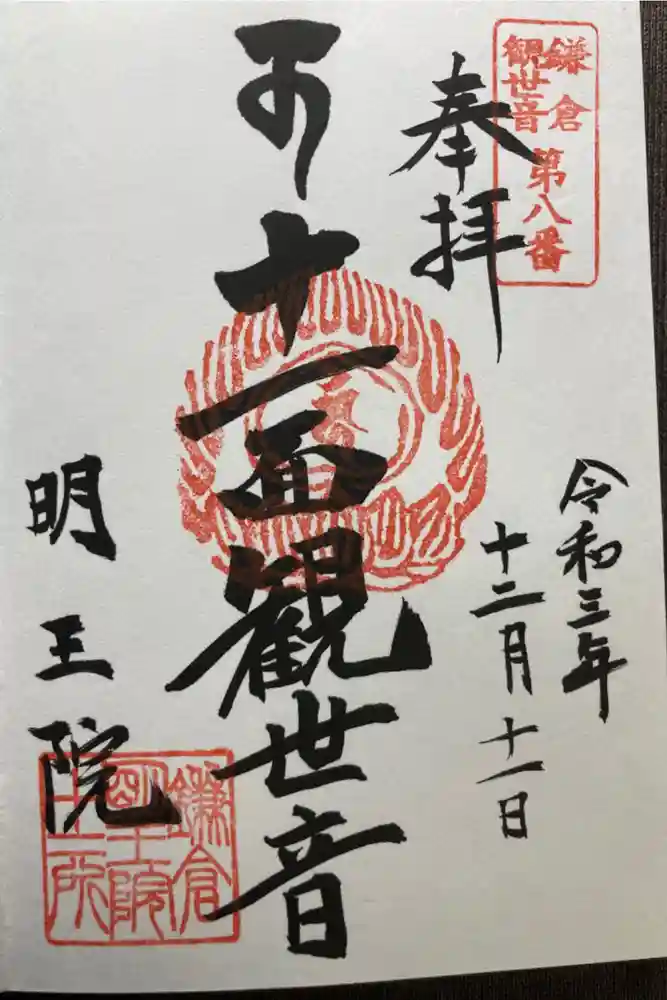 鎌倉
観世音
第八番
奉拝
令和三年
十二月十一日
十一面観世音
明王院
鎌倉
明王院